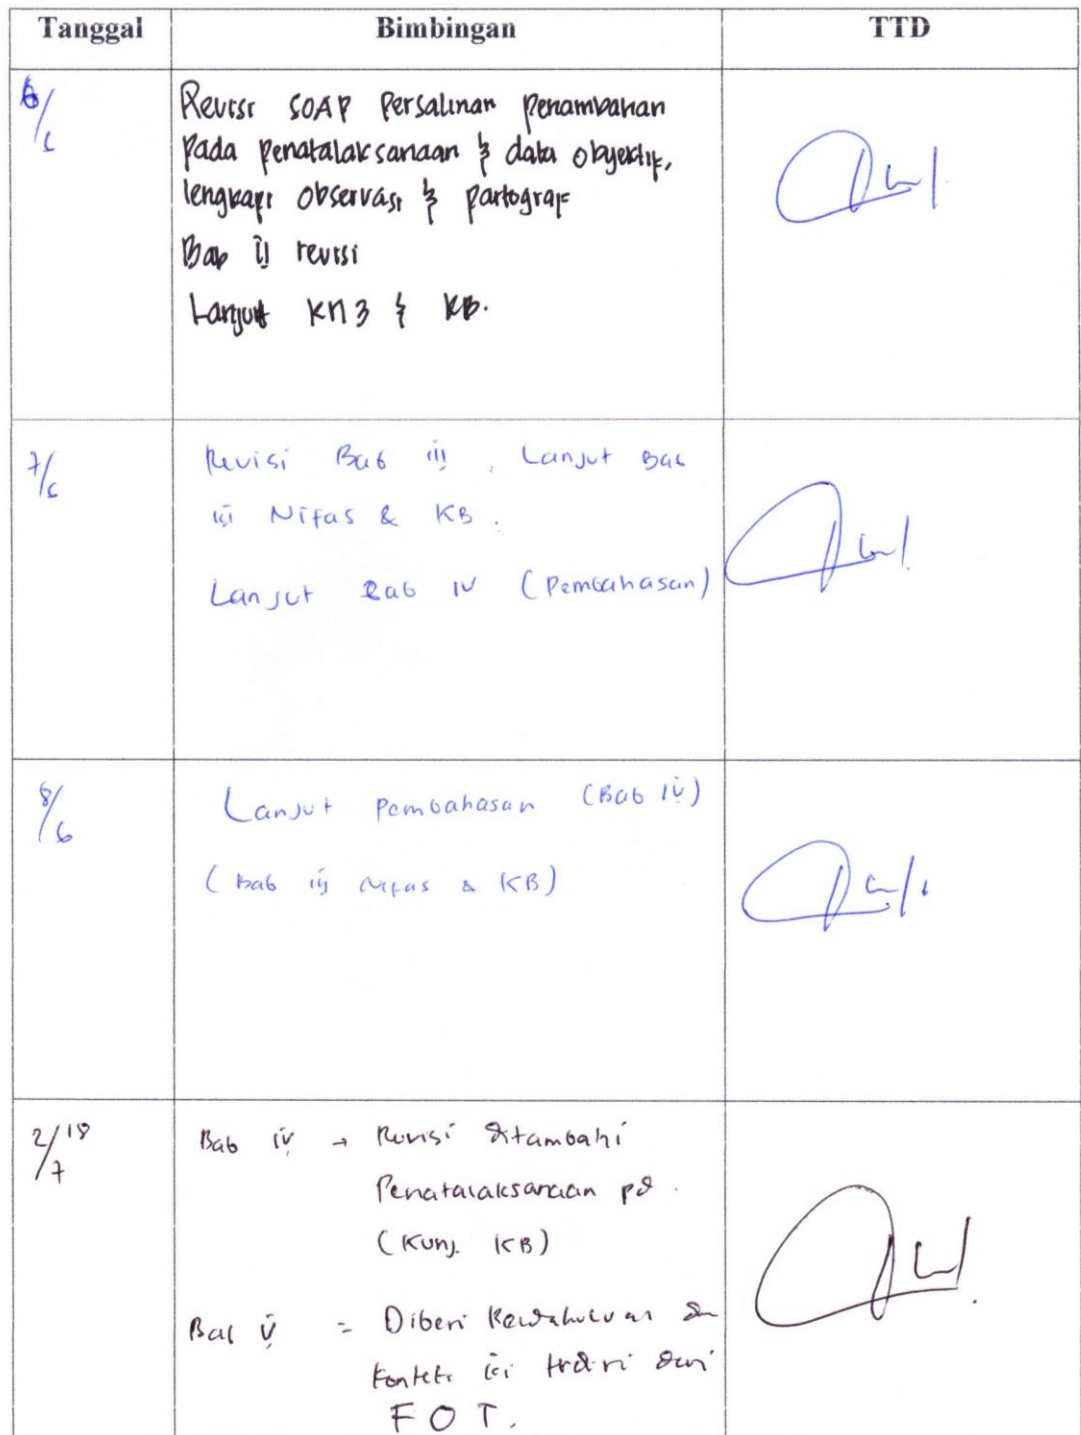 Tanggal Bimbingan TTD
6/6 Revisi SOAP Persalinan Penambahan
pada penatalaksanaan & data obyektif,
lengkapi observasi & partograf
Bab iij revisi
Lanjut KN3 & KB.
7/6 Revisi Bab iij, Lanjut Bab
iij Nifas & KB.
Lanjut Bab IV (Pembahasan)
8/6 Lanjut pembahasan (Bab IV)
(Bab iij Nifas & KB)
2/7 18 Bab IV → Revisi ditambahi
Penatalaksanaan pd.
(Kunj. KB)
Bab V = Diberi
isi terdiri dari
F O T.